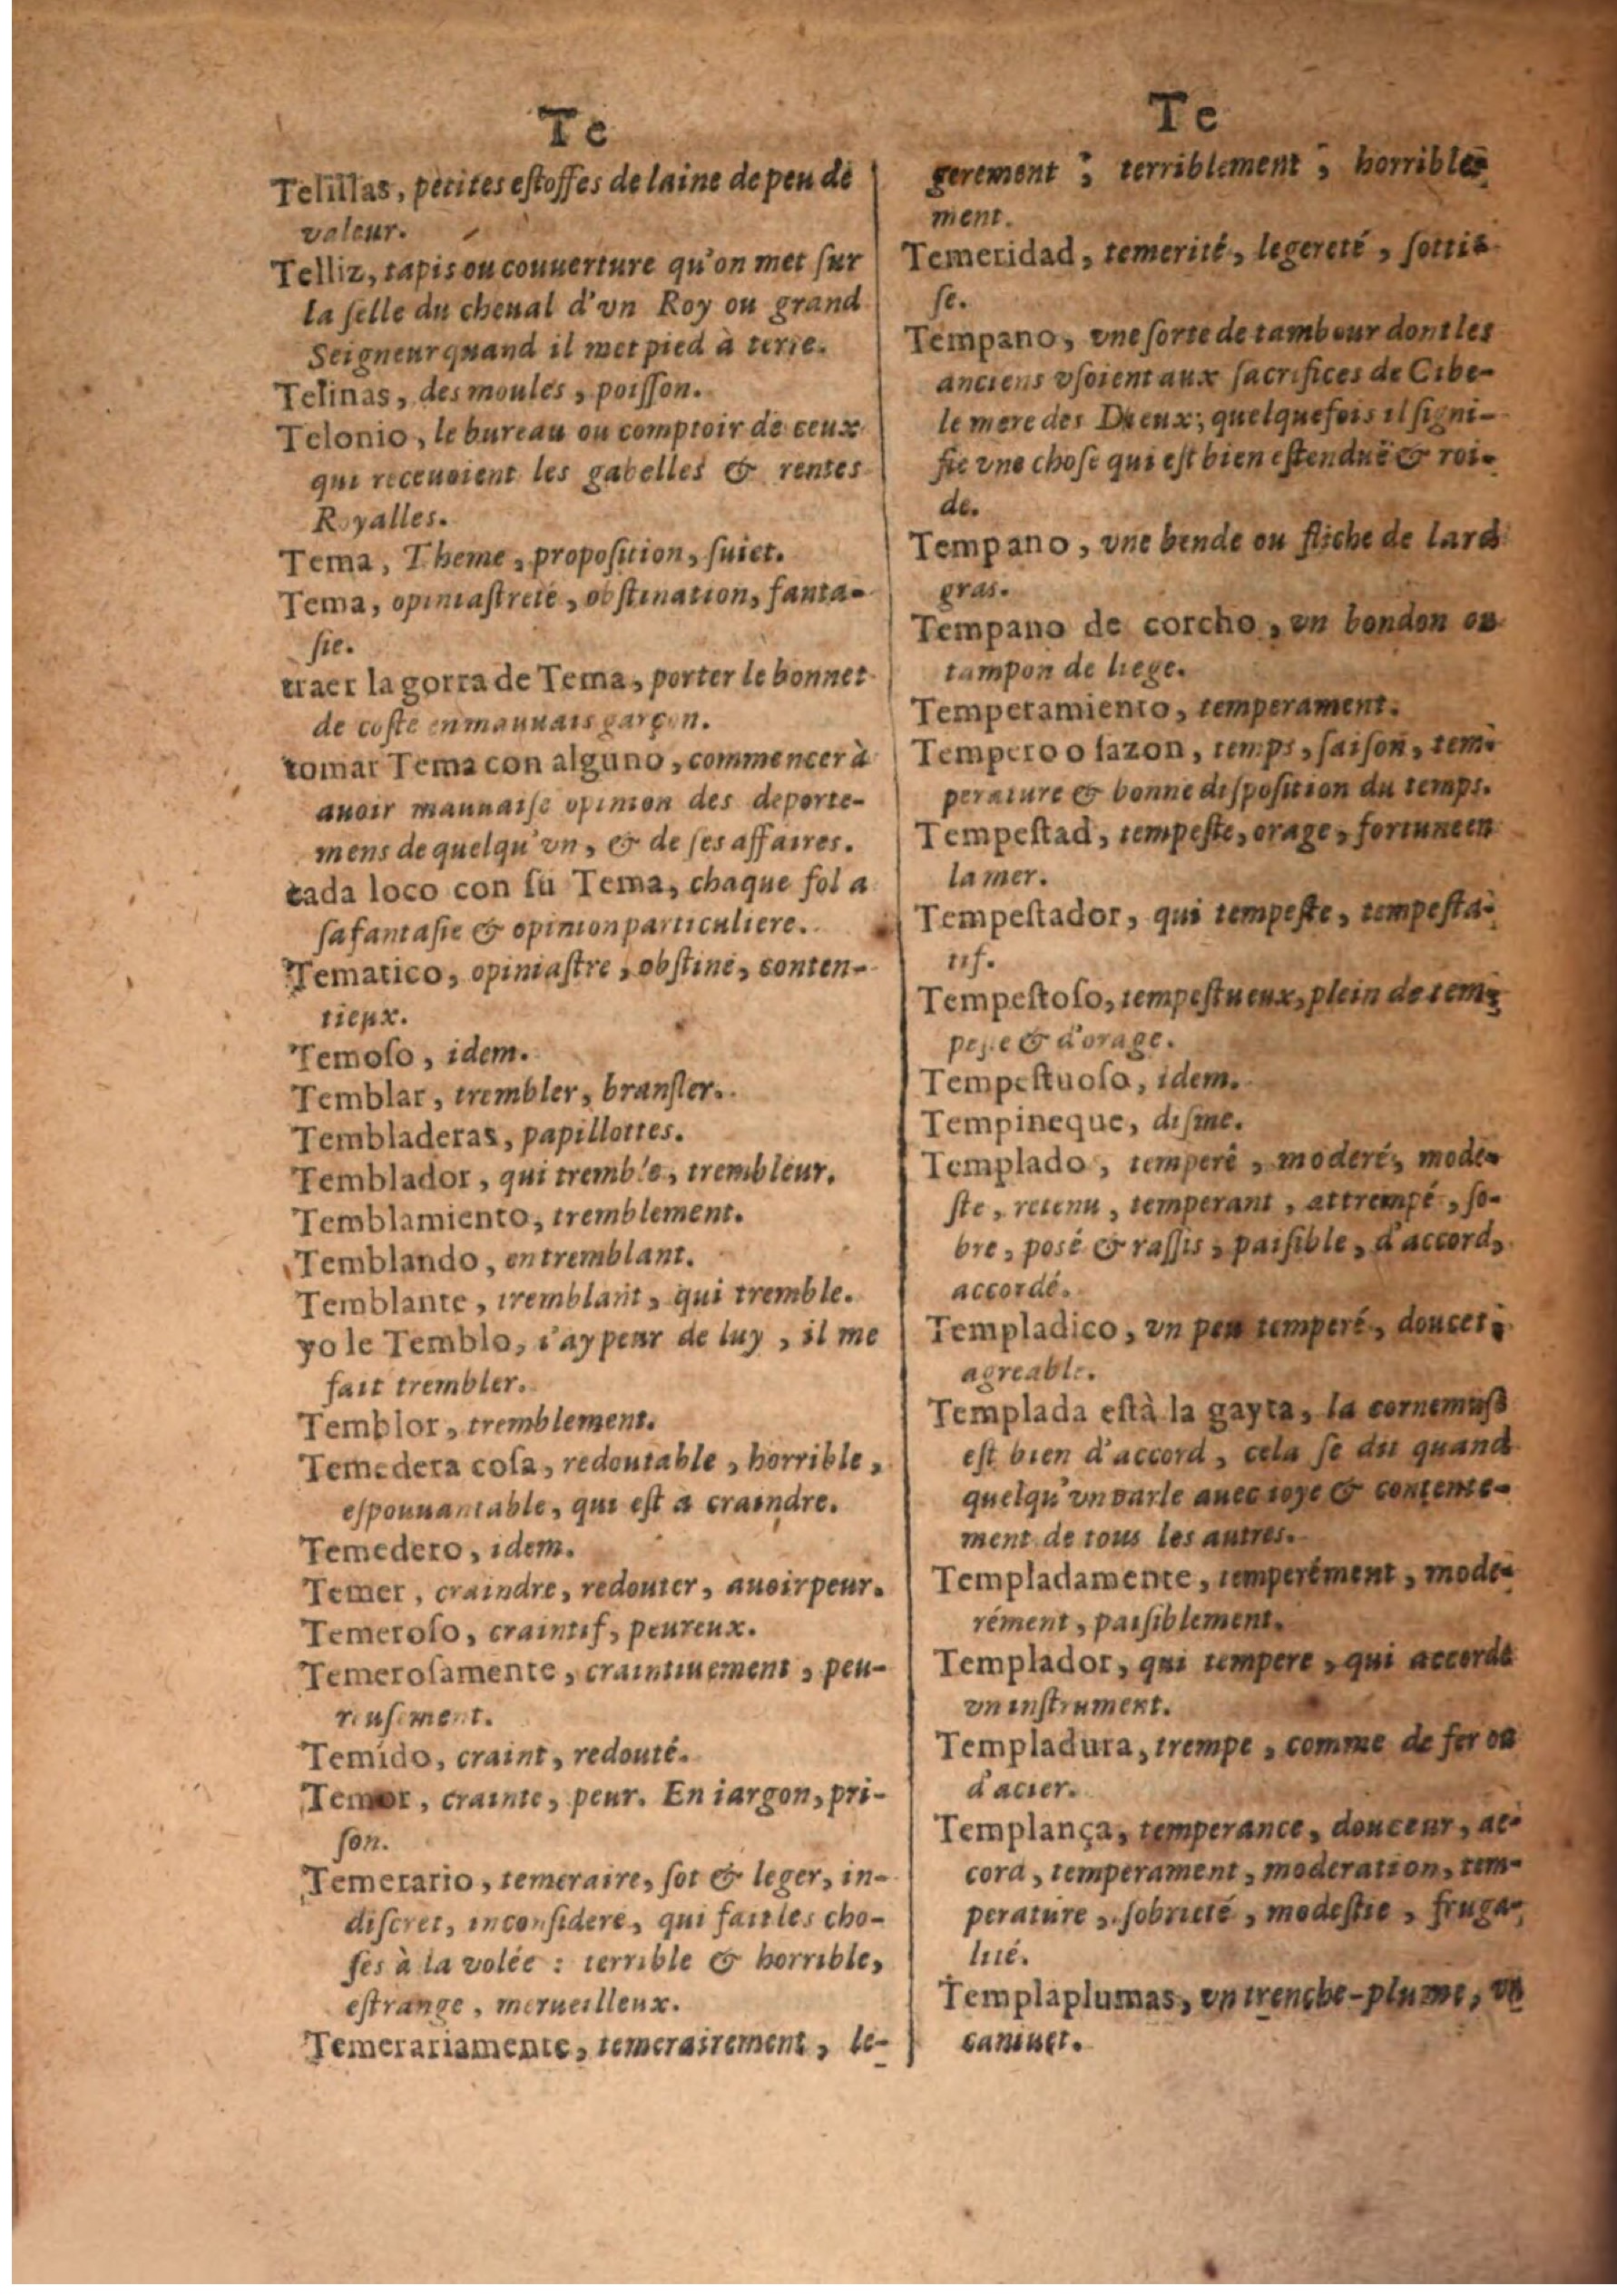 Te
Telillas, petites eſtoffes de laine de peu de
valeur.
Telliz, tapis ou couuerture qu'on met ſur
la ſelle du cheual d'vn Roy ou grand
Seigneur quand il met pied à terre.
Telinas, des moules, poiſſon.
Telonio, le bureau ou comptoir de ceux
qui receuoient les gabelles & rentes
Royalles.
Tema, Theme, propoſition, ſuiet.
Tema, opiniaſtreté, obſtination, fanta-
ſie.
traer la gorra de Tema, porter le bonnet
de coſté en mauuais garçon.
tomar Tema con alguno, commencer à
auoir mauuaiſe opinion des deporte-
mens de quelqu'vn, & de ſes affaires.
cada loco con ſu Tema, chaque fol a
ſa fantaſie & opinion particuliere.
Tematico, opiniaſtre, obſtiné, conten-
tieux.
Temoſo, idem.
Temblar, trembler, branſler.
Tembladeras, papillottes.
Temblador, qui tremble, trembleur.
Temblamiento, tremblement.
Temblando, en tremblant.
Temblante, tremblant, qui tremble.
yo le Temblo, i'ay peur de luy, il me
fait trembler.
Temblor, tremblement.
Temedera coſa, redoutable, horrible,
eſpouuantable, qui eſt a craindre.
Temedero, idem.
Temer, craindre, redouter, auoir peur.
Temeroſo, craintif, peureux.
Temeroſamente, craintiuement, peu-
reuſement.
Temido, craint, redouté.
Temor, crainte, peur. En iargon, pri-
ſon.
Temerario, temeraire, ſot & leger, in-
diſcret, inconſideré, qui fait les cho-
ſes à la volée : terrible & horrible,
eſtrange, merueilleux.
Temerariamente, temerairement, le-
Te
gerement ; terriblement ; horrible-
ment.
Temeridad, temerité, legereté, ſottiſ-
ſe.
Tempano, vne ſorte de tambour dont les
anciens vſoient aux ſacrifices de Cibe-
le mere des Dieux; quelquefois il ſigni-
fie vne choſe qui eſt bien eſtenduë & roi-
de.
Tempano, vne bende ou fliche de lard
gras.
Tempano de corcho, vn bondon ou
tampon de liege.
Temperamiento, temperament.
Tempero o ſazon, temps, ſaiſon, tem-
perature & bonne diſpoſition du temps.
Tempeſtad, tempeſte, orage, fortune en
la mer.
Tempeſtador, qui tempeſte, tempeſta-
tif.
Tempeſtoſo, tempeſtueux, plein de tem-
peſte & d'orage.
Tempeſtuoſo, idem.
Tempineque, diſme.
Templado, temperé, moderé, mode-
ſte, retenu, temperant, attrempé, ſo-
bre, poſé & raſſis, paiſible, d'accord,
accordé.
Templadico, vn peu temperé, doucet,
agreable.
Templada eſtà la gayta, la cornemuſe
eſt bien d'accord, cela ſe dit quand
quelqu'vn parle auec ioye & contente-
ment de tous les autres.
Templadamente, temperément, mode-
rément, paiſiblement.
Templador, qui tempere, qui accorde
vn inſtrument.
Templadura, trempe, comme de fer ou
d'acier.
Templança, temperance, douceur, ac-
cord, temperament, moderation, tem-
perature, ſobrieté, modeſtie, fruga-
lité.
Templaplumas, vn trenche-plume, vn
caniuet.